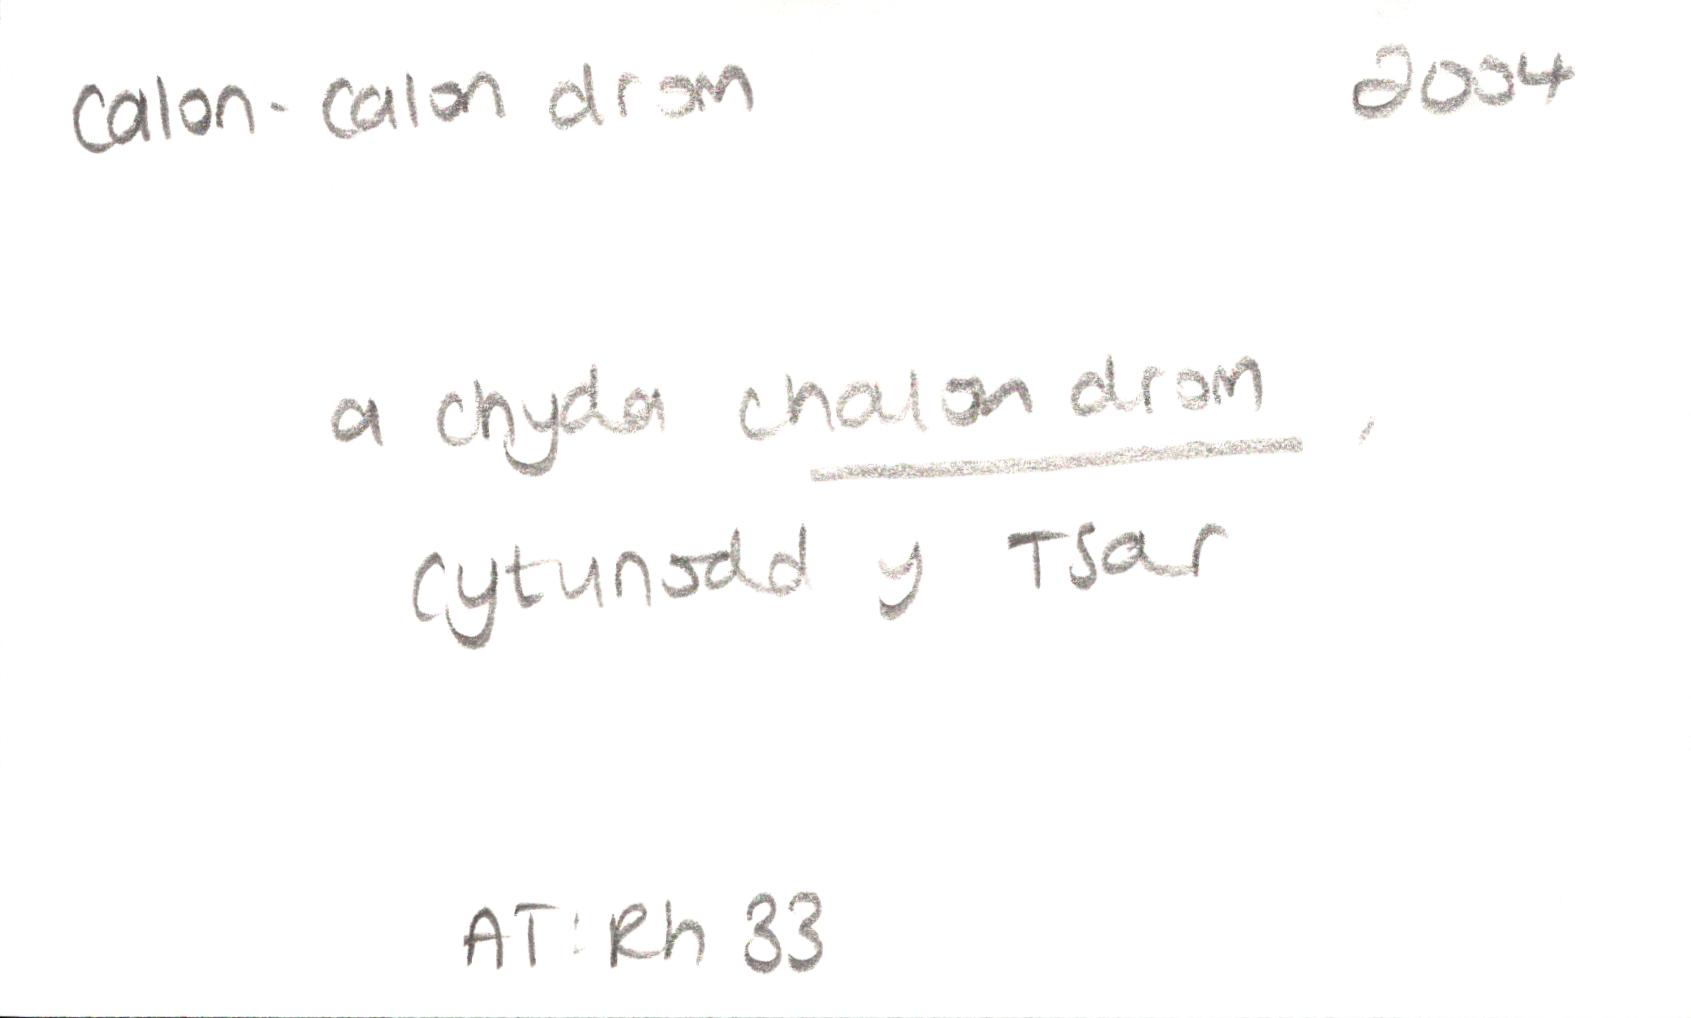 calon - calon drom 2004
a chyda chalon drom,
cytunodd y Tsar
AT: Rh 33